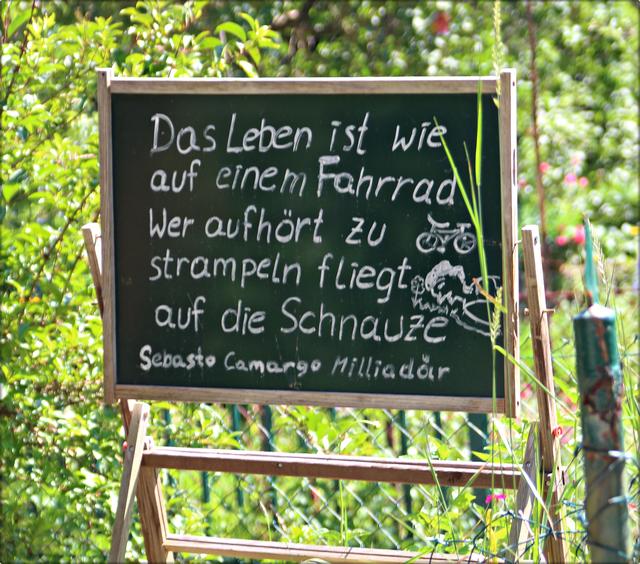 Das Leben ist wie
auf einem Fahrrad
Wer aufhört zu
strampeln fliegt
auf die Schnauze
Sebasto Camargo Milliadär